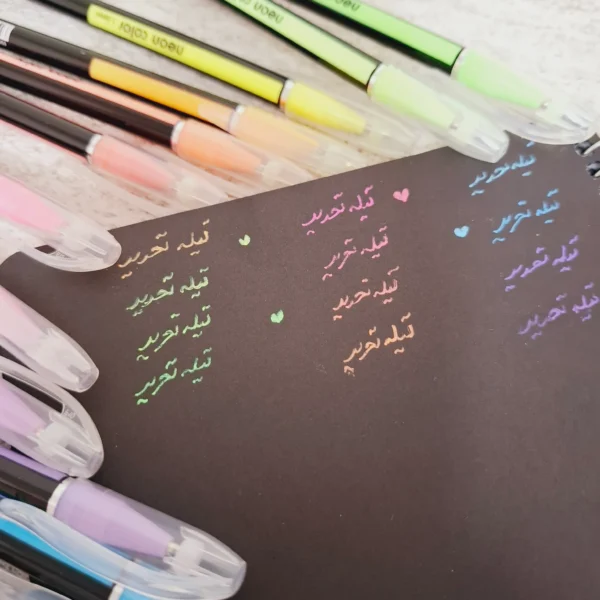 neon color
neon color
neon color
تیله تحریر
تیله تحریر
تیله تحریر
تیله تحریر
تیله تحریر
تیله تحریر
تیله تحریر
تیله تحریر
تیله تحریر
تیله تحریر
تیله تحریر
تیله تحریر